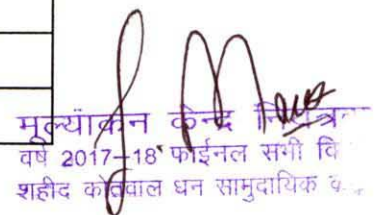 मूल्यांकन केन्द्र
वर्ष 2017-18 फाईनल सभी
शहीद कोतवाल धन सामुदायिक